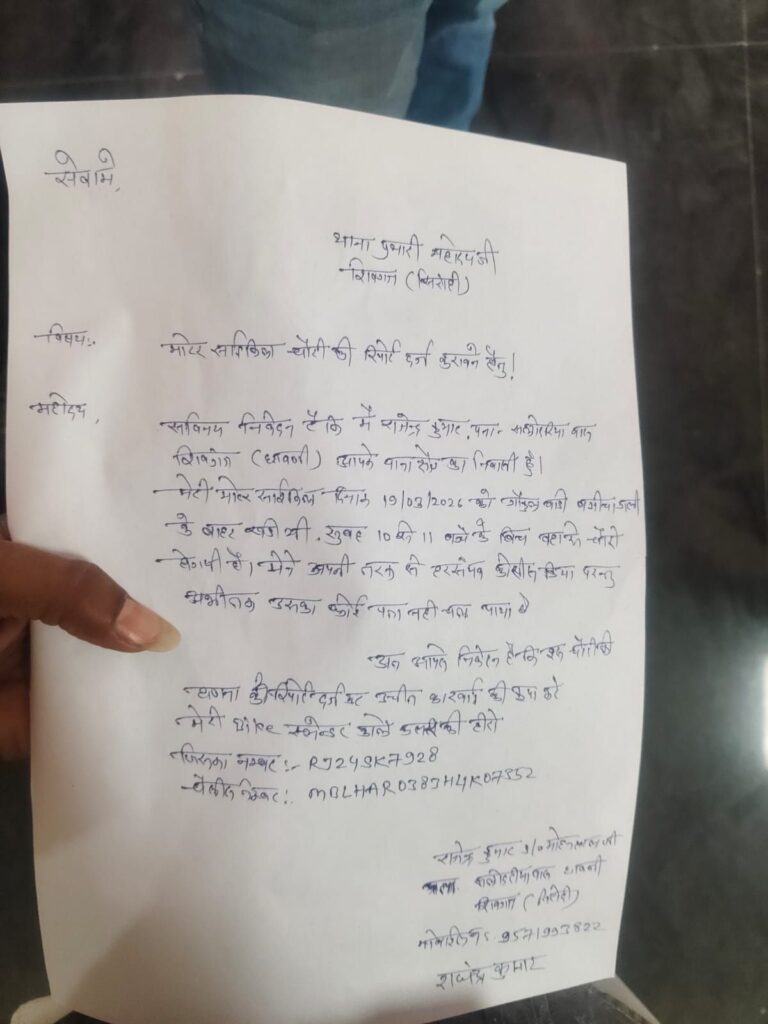 सेवामे,
थाना प्रभारी महोदयजी
शिवगंज (सिरोही)
विषय:-
मोटर साईकिल चोरी की रिपोर्ट दर्ज कराने हेतु!
महोदय,
सविनय निवेदन है कि मैं राजेन्द्र कुमार, पता-
शिवगंज (छावनी) आपके थाना क्षेत्र का निवासी हूँ।
मेरी मोटर साईकिल दिनांक 19/03/2026 को गोकुल वाडी बगीचा गली
के बाहर खडी थी. सुबह 10 से 11 बजे के बिच वहा से चोरी
हो गयी है। मेने अपनी तरफ से हरसंभव कोशीश किया परन्तु
अभीतक उसका कोई पता नही चल पाया है
अत आपसे निवेदन है कि इस चोरी की
घटना की रिपोर्ट दर्ज कर उचीत कारवाई की कृपा करे
मेरी Bike स्पलेन्डर काले कलर की हीरो
जिसका नम्बर :- RJ24SK7928
चेसीस नम्बर: MBLHAR038JH4K07352
राजेन्द्र कुमार S/o मोहनलाल जी
छावनी
शिवगंज (सिरोही)
मोबाईल नं. 9571993822
राजेन्द्र कुमार